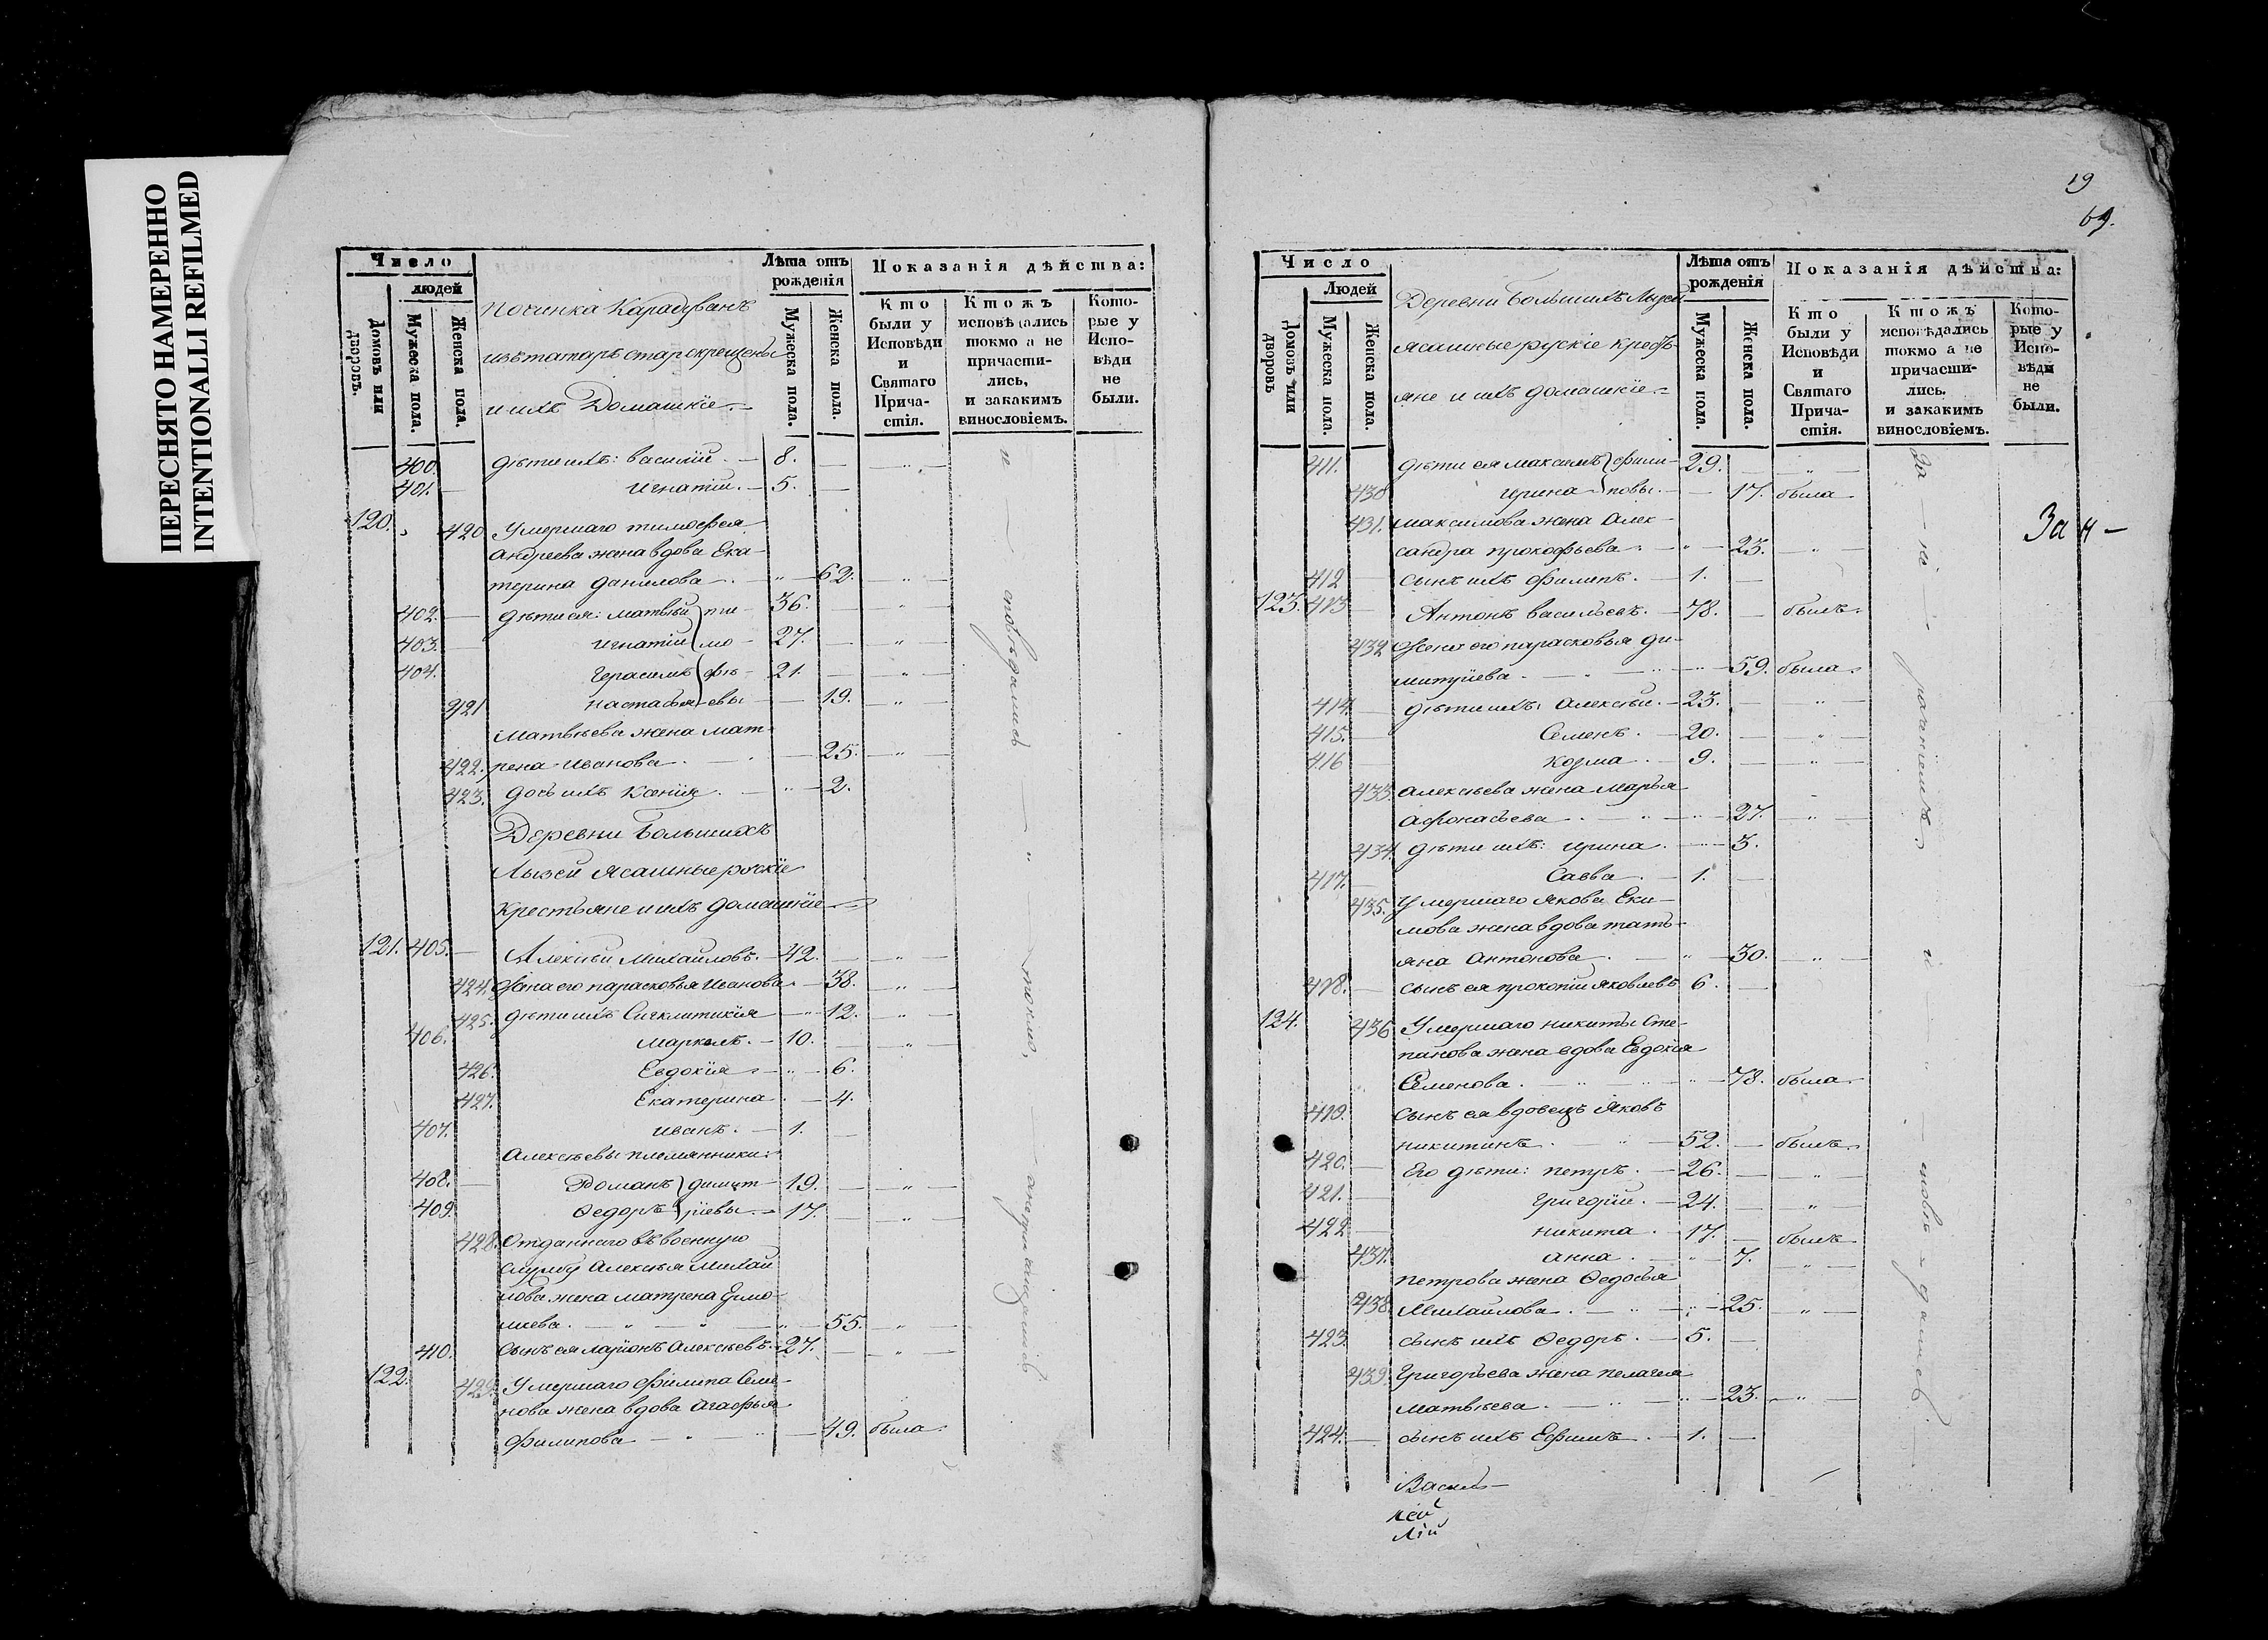 ПЕРЕСНЯТО НАМЕРЕННО
INTENTIONALLI REFILMED
Число
людей
Домовъ или дворовъ.
Мужеска пола.
Женска пола.
Починка Карадуванъ
изъ татаръ старокрещены
и ихъ Домашніе.
Лѣта отъ рожденія
Мужеска пола.
Женска пола.
Показанія дѣйства:
Кто были у Исповѣди и Святаго Причастія.
Ктожъ исповѣдались токмо а не причастились, и закакимъ винословіемъ.
Которые у Исповѣди не были.
400. дѣти ихъ: василий. — 8. — „ —
401. — игнатій. — 5. —
120. 420 Умершаго тимофея
андреева жена вдова Ека-
терина данилова. — „ — 62. — „ —
402. — дѣти ея: матвѣй ти- 36. — „ —
403. — игнатій мо- 27. — „ —
404. герасимъ фѣ- 21. — „ —
421 настасья евы — 19. — „ —
матвѣева жена мат-
422. рена иванова. — 25. — „ —
423. дочь ихъ Ксенія. — „ — 2.
Деревни Большихъ
Лызей Ясашные руския
крестьяне и ихъ домашніе
121. 405. — Алексѣй Михаиловъ. — 42. — „ —
424. Жена его парасковья Иванова — 38. — „ —
425. дѣти ихъ Сигклитикія — „ — 12. — „ —
406. маркелъ. — 10. — „ —
426. Евдокія — „ — 6.
427. Екатерина. — 4.
407. иванъ. — 1. —
Алексѣевы племянники:
408. — Романъ димит- 19. — „ —
409. Ѳедоръ ріевы. — 17. — „ —
428. Отданнаго въ военную
службу Алексѣя Михай
лова жена матрена Ермо-
лаева. — „ — „ — „ — 55. — „ —
410. Сынъ ея ларіонъ Алексѣевъ. — 27. — „ —
122. 429. Умершаго Филипа Семе-
нова жена вдова Агафья
Филипова — „ — 49. была.
и — сповѣдались — „ — токмо, — анепричащались
19
69.
Число
Людей
Домовъ или дворовъ
Мужеска пола.
Женска пола.
Деревни Большихъ Лызей
ясашные рускіе кресть-
яне и ихъ домашніе. =
Лѣта отъ рожденія
Мужеска пола.
Женска пола.
Показанія дѣйства:
Кто были у Исповѣди и Святаго Причастія.
Ктожъ исповѣдались токмо а не причастились. и закакимъ винословіемъ.
Которые у Исповѣди не были.
411. дѣти ея максимъ фили- 29. — „ —
430 ирина повы. — 17. была
431. максимова жена Алек-
сандра прокофьева. — „ — 23. — „ —
412 — сынъ ихъ Филипъ. — 1. —
123. 413 Антонъ васильевъ. — 78. — былъ.
432 Жена его парасковья ди-
митріева. — „ — 59. была.
414. — дѣти ихъ: Алексѣй. — 23. — „ —
415. — Семенъ. — 20. — „ —
416 — козма. — 9. — „ —
433. алексѣева жена марья
Афонасьева — „ — 27. — „ —
434. дѣти ихъ: ирина. — „ — 3.
417. — Савва. — 1. —
435. Умершаго Якова Еки-
мова жена вдова тать-
яна Антонова. — „ — 30. — „ —
418. — сынъ ея прокопій яковлевъ 6. —
124. 436 Умершаго никиты Сте-
панова жена вдова Евдокія
Семенова. — „ — „ — 78. была.
419. Сынъ ея вдовецъ Яковъ
никитинъ. — „ — 52. — былъ.
420. — Его дѣти: петръ. — 26. — „ —
421. — григорій. — 24. — „ —
422 — никита. — 17. — былъ
437. анна. — „ — 7. — „ —
петрова жена Ѳедосья
438. Михаилова. — „ — 25. — „ —
423 сынъ ихъ Ѳедоръ. — 5. —
439. григорьева жена пелагея
матвѣева. — „ — „ — 23. — „ —
424. — сынъ ихъ Ефимъ. — 1. —
За н-
Василь-
кей
лій